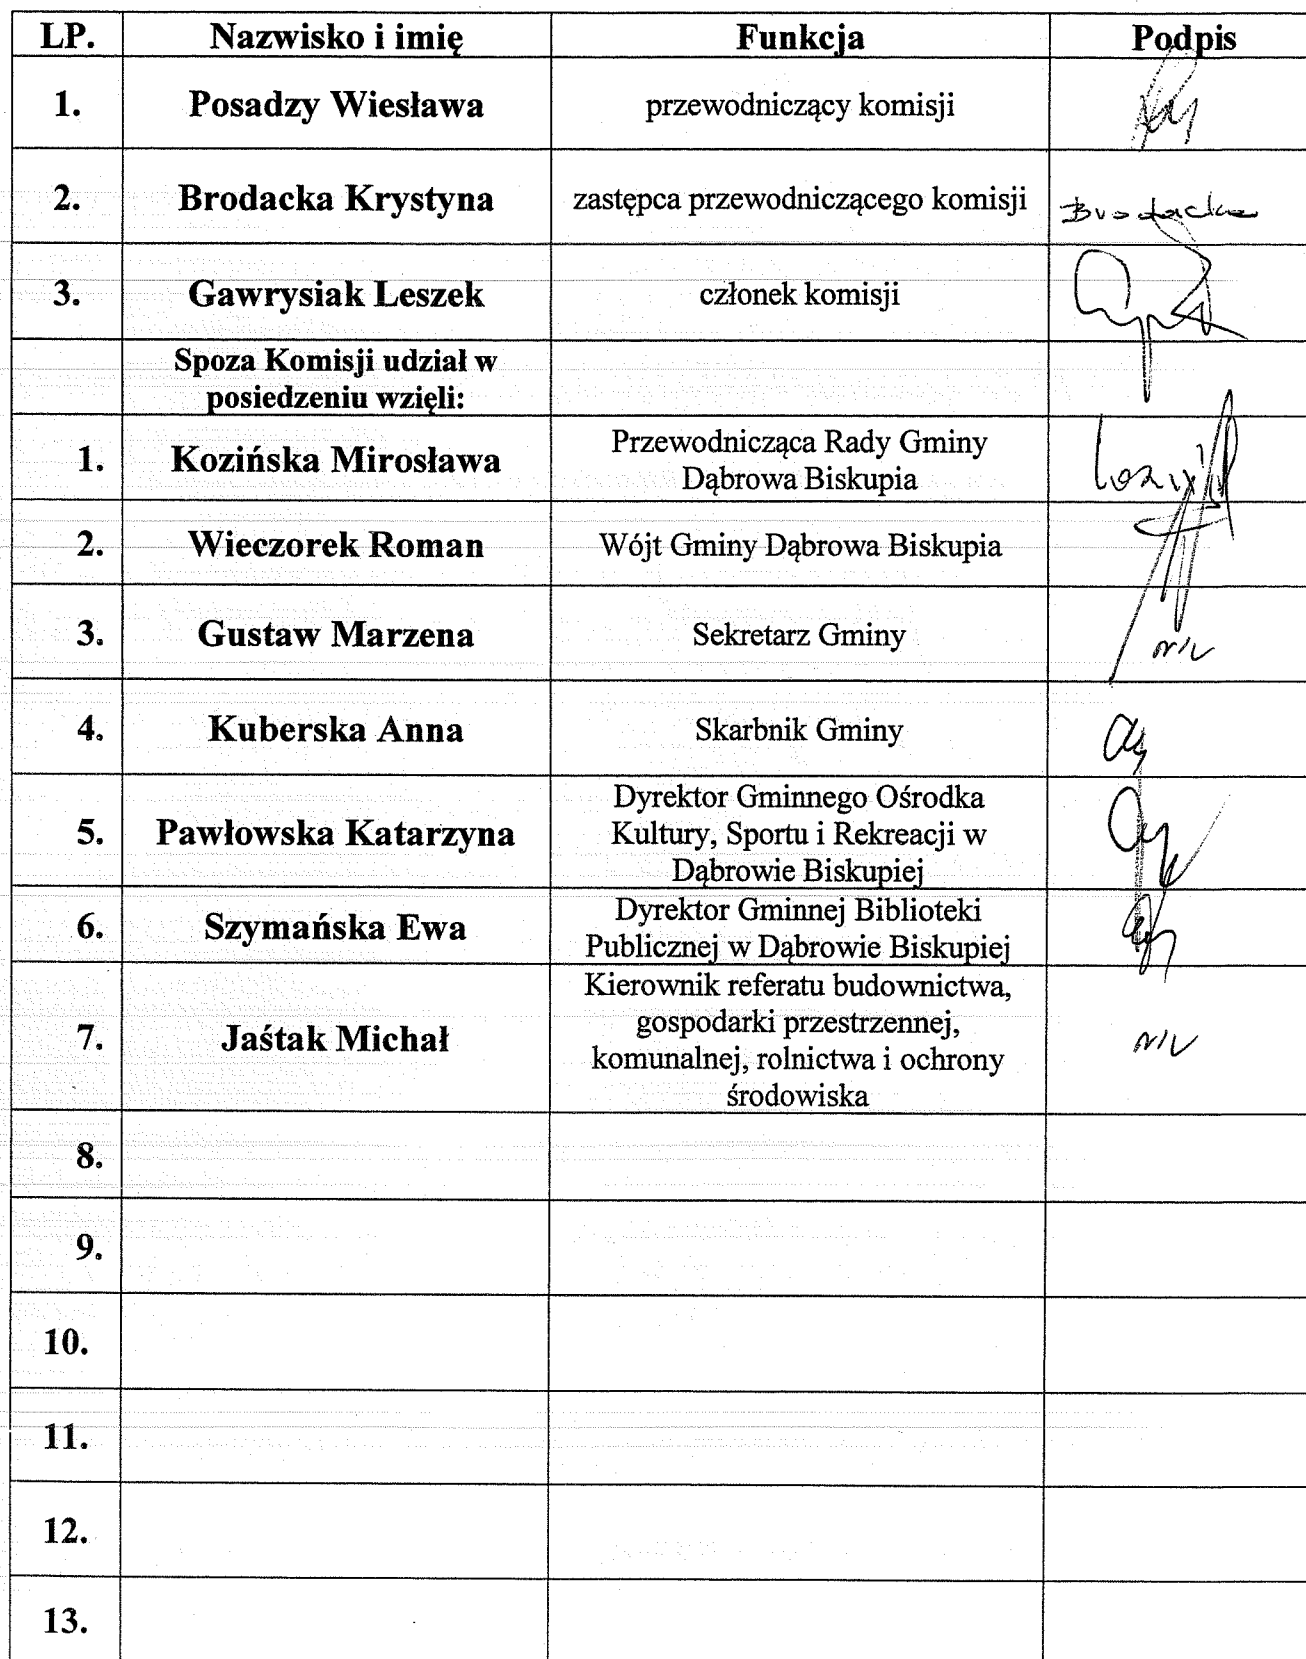 LP. Nazwisko i imię Funkcja Podpis
1. Posadzy Wiesława przewodniczący komisji
2. Brodacka Krystyna zastępca przewodniczącego komisji Brodacka
3. Gawrysiak Leszek członek komisji
Spoza Komisji udział w
posiedzeniu wzięli:
1. Kozińska Mirosława Przewodnicząca Rady Gminy
Dąbrowa Biskupia
2. Wieczorek Roman Wójt Gminy Dąbrowa Biskupia
3. Gustaw Marzena Sekretarz Gminy
4. Kuberska Anna Skarbnik Gminy
5. Pawłowska Katarzyna Dyrektor Gminnego Ośrodka
Kultury, Sportu i Rekreacji w
Dąbrowie Biskupiej
6. Szymańska Ewa Dyrektor Gminnej Biblioteki
Publicznej w Dąbrowie Biskupiej
7. Jaśtak Michał Kierownik referatu budownictwa,
gospodarki przestrzennej,
komunalnej, rolnictwa i ochrony
środowiska
8.
9.
10.
11.
12.
13.